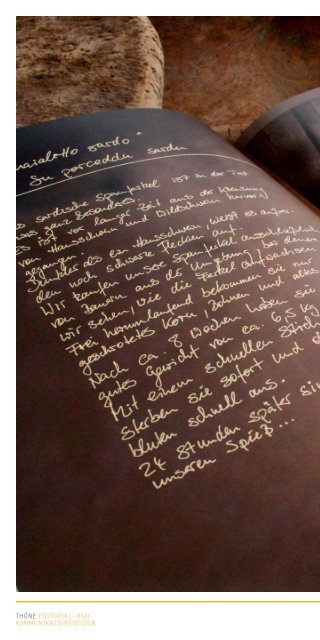 maialetto sardo "
Su porceddu sardu
sardische Spanferkel ist in der Tat
was ganz Besonderes.
Es ist vor langer Zeit aus der Kreuzung
von Hausschwein und Wildschwein hervor/
gegangen.
Dunkler als ein Hausschwein, weist es außer-
dem noch schwarze Flecken auf.
Wir kaufen unsere Spanferkel ausschließlich
von Bauern aus der Umgebung, bei denen
wir sehen, wie die Ferkel aufwachsen.
Frei herumlaufend bekommen sie nur
geschrotetes Korn, Bohnen und alles
Nach ca. 8 Wochen haben sie
gutes Gewicht von ca. 6,5 kg
Mit einem schnellen Stich
sterben sie sofort und
bluten schnell aus.
24 Stunden später sin
unseren Spieß...
THÖNE EDITORIAL- UND
KOMMUNIKATIONSDESIGN